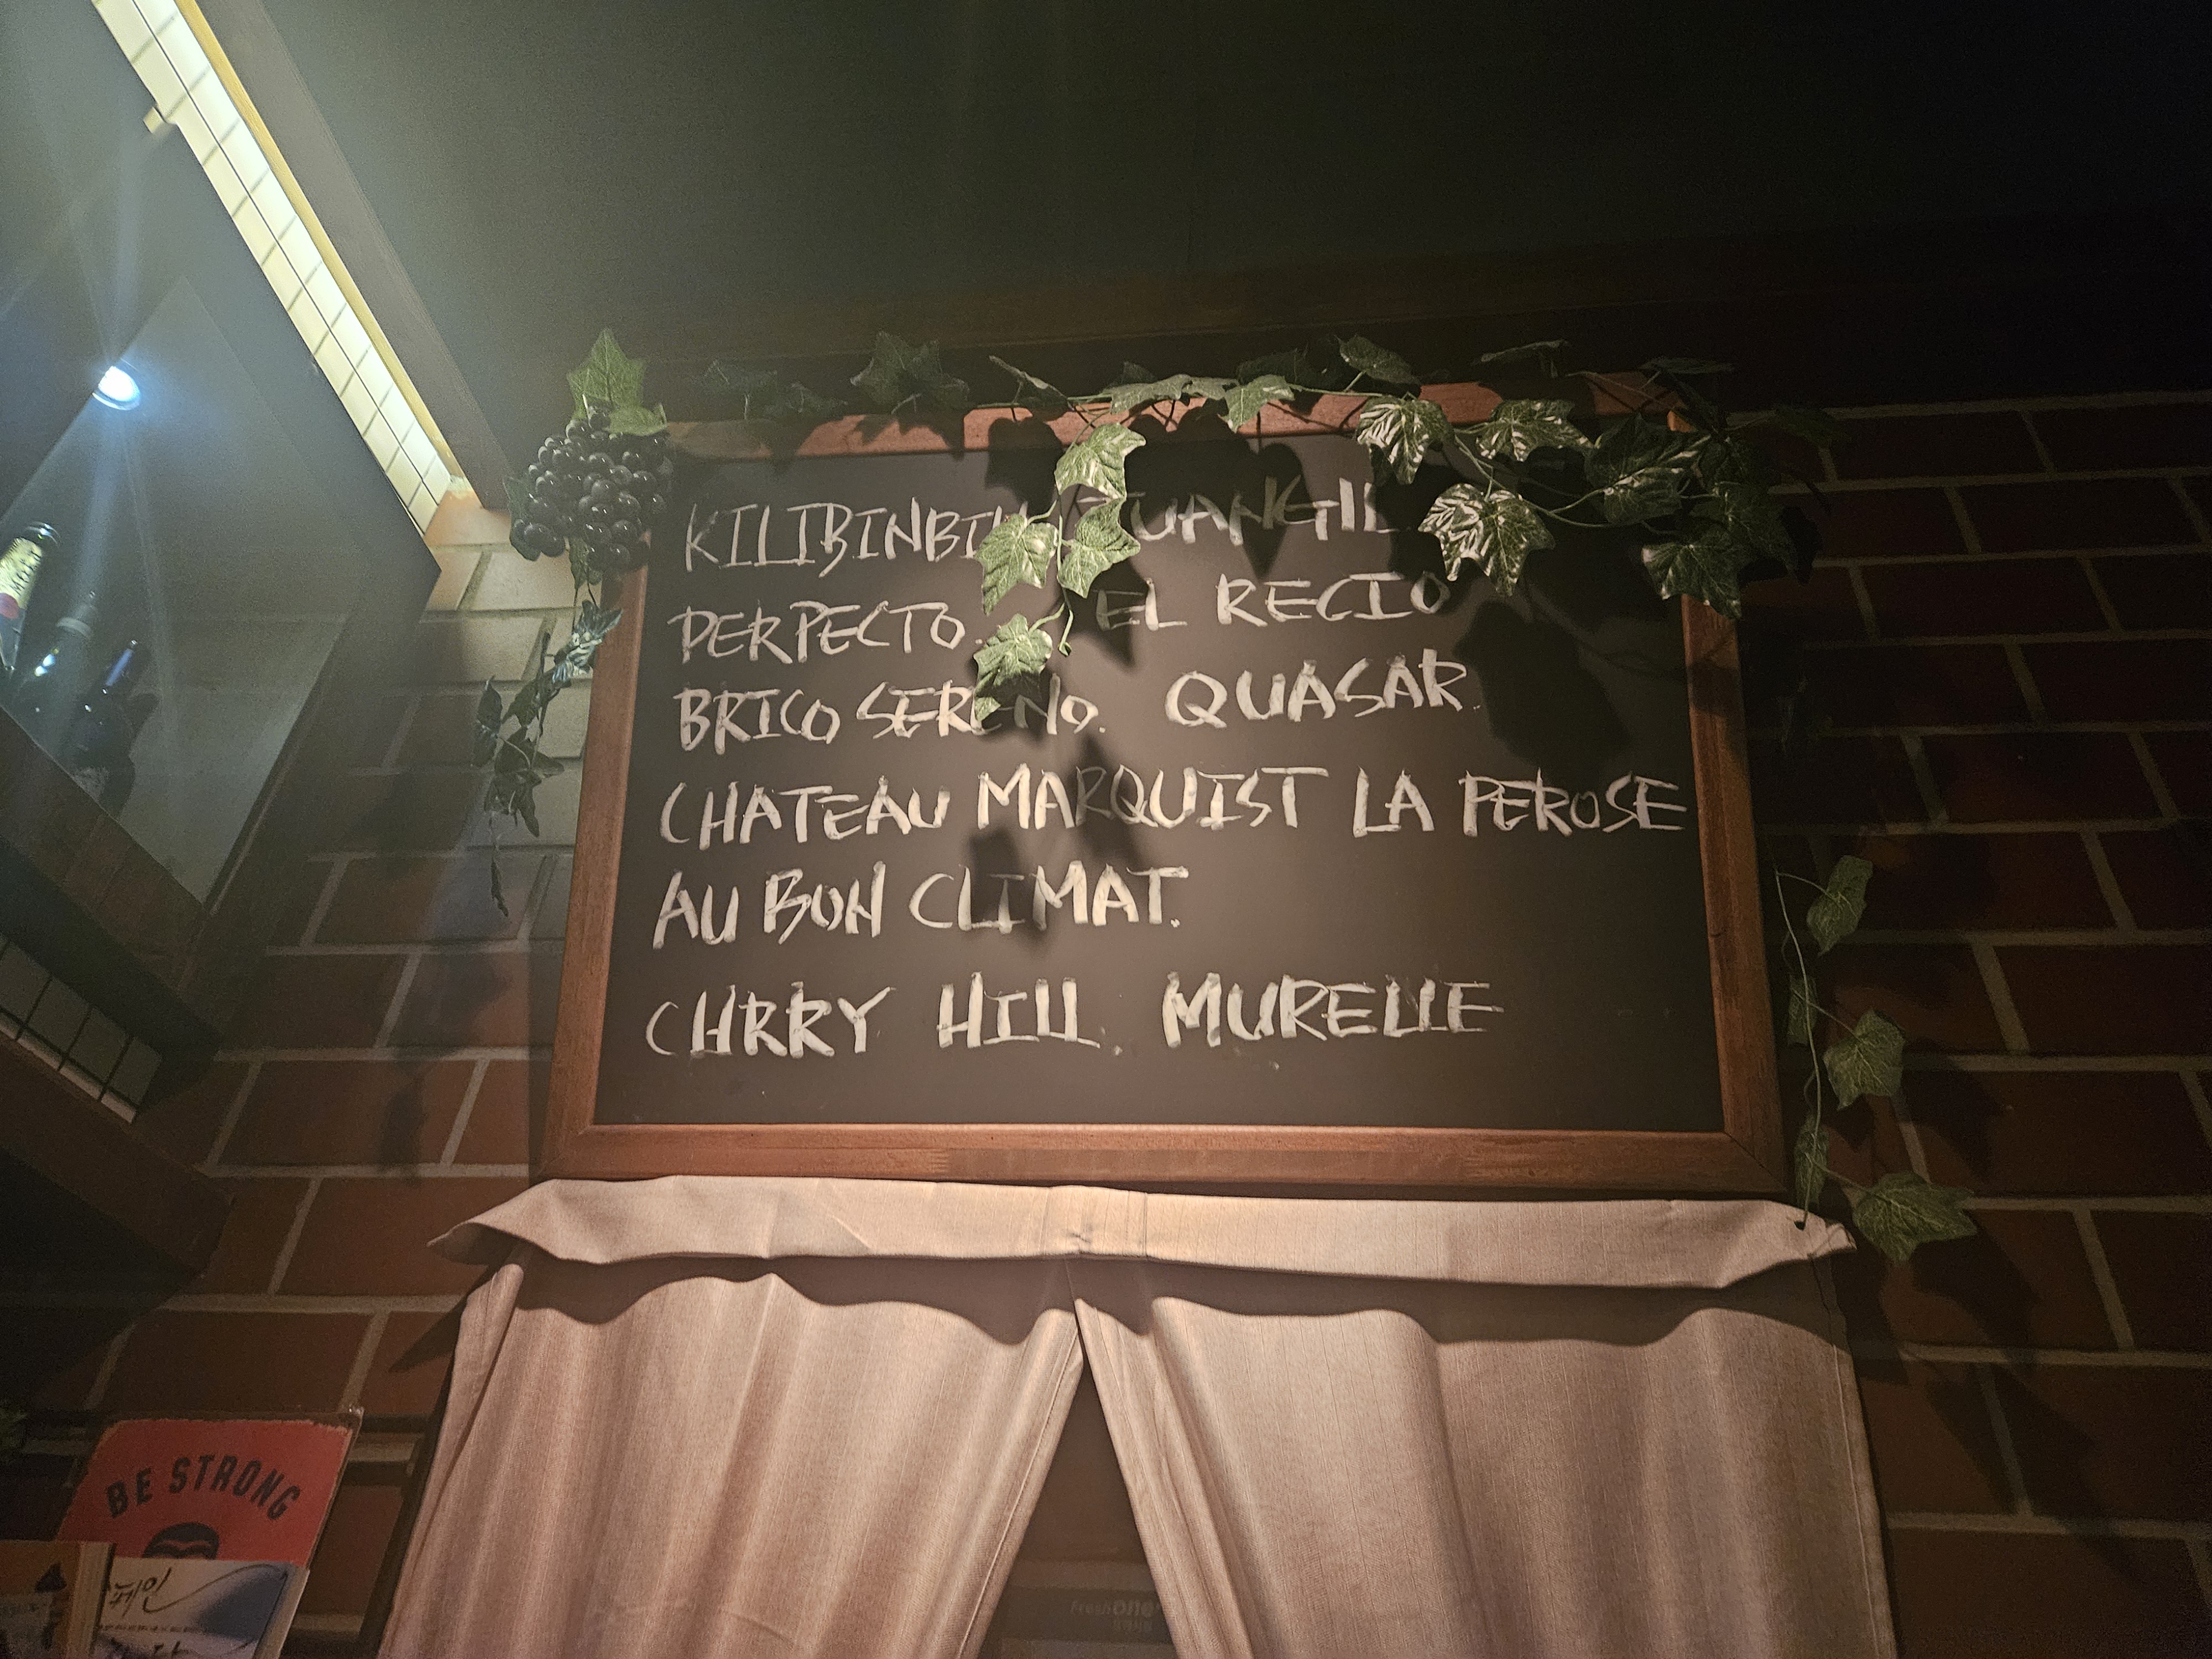 KILIBINBIN JUANGIL
PERPECTO. EL RECIO
BRICO SERENO. QUASAR.
CHATEAU MARQUIST LA PEROSE
AU BON CLIMAT.
CHRRY HILL. MURELLE
BE STRONG
페인
Freshone